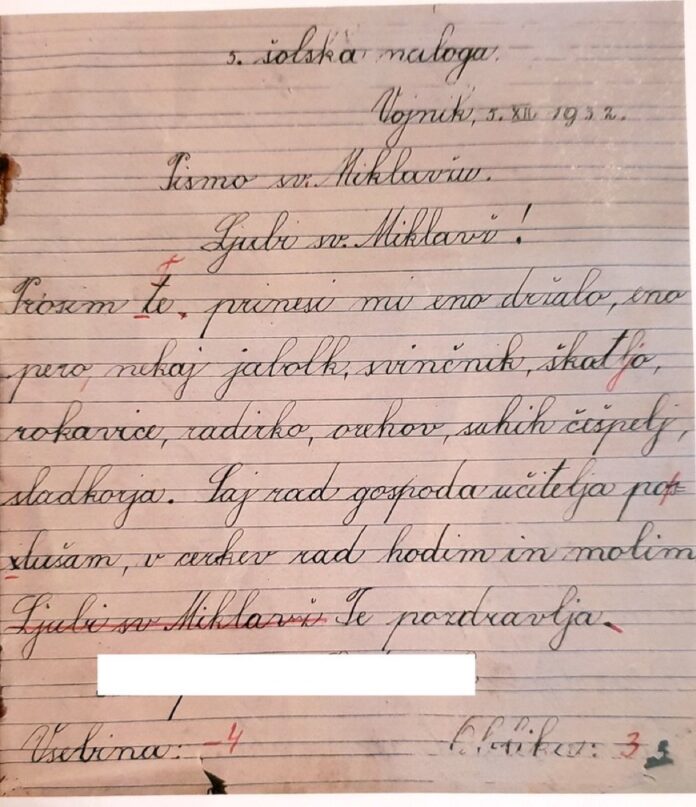 5. šolska naloga.
Vojnik, 5. XII. 1932.
Pismo sv. Miklavžu.
Ljubi sv. Miklavž!
T
Prosim te, prinesi mi eno držalo, eno
pero, nekaj jabolk, svinčnik, škatljo,
rokavice, radirko, orehov, suhih češpelj,
sladkorja. Saj rad gospoda učitelja pos=
slušam, v cerkev rad hodim in molim
Ljubi sv Miklavž Te pozdravlja.
Vsebina: -4
3